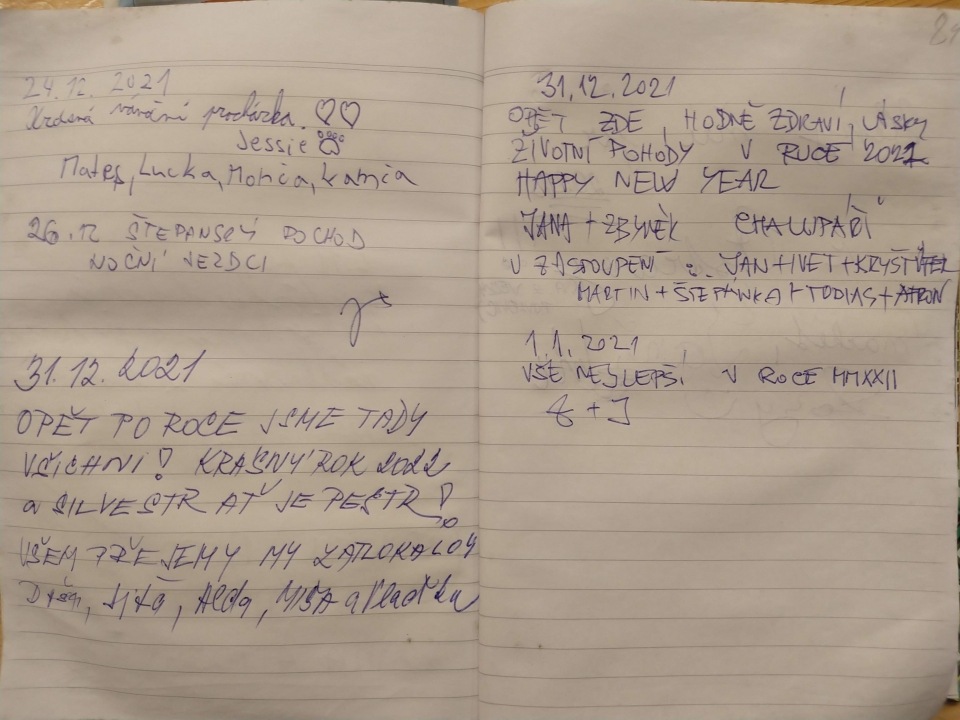 24.12. 2021
Krásná vánoční procházka.
Jessie
Matěj, Lucka, Monča, Kamča
26.12 ŠTĚPÁNSKÝ POCHOD
NOČNÍ JEZDCI
31.12.2021
OPĚT PO ROCE JSME TADY
VŠICHNI! KRÁSNÝ ROK 2022
a SILVESTR AŤ JE PESTR!
VŠEM PŘEJEMY MY
Jiťa, Alda, MÍŠA a Vlaďka
31.12.2021
OPĚT ZDE, HODNĚ ZDRAVÍ, LÁSKY
ŽIVOTNÍ POHODY V ROCE 2022
HAPPY NEW YEAR
JANA + ZBYNĚK CHALUPÁŘÍ
V ZASTOUPENÍ : JAN + IVET + KRYŠTŮFEK
MARTIN + ŠTĚPÁNKA + TOBIAS +
1.1.2021
VŠE NEJLEPŠÍ V ROCE MMXXII
Z + J